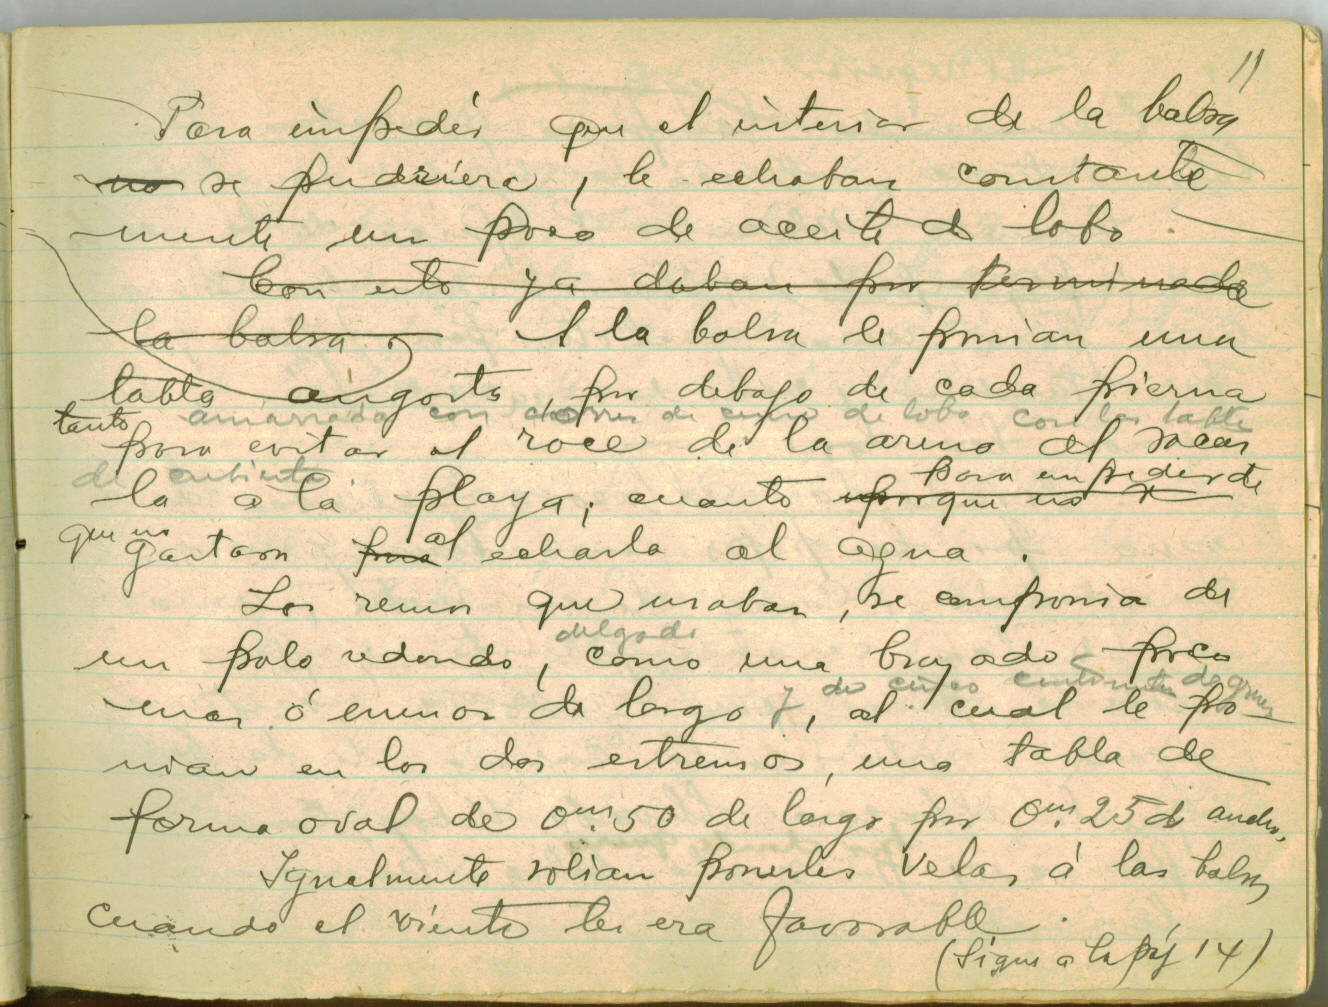 11
Para impedir que el interior de la balsa
no se pudriera, le echaban constante
mente un poco de aceite de lobo.
Con esto ya daban por terminada
la balsa. A la balsa le ponian una
tabla angosta, por debajo de cada pierna
amarrada con de cuero de lobo, con las tabla
tanto para evitar el roce de la arena al sacar
de cubierta
la a la playa; cuanto porque no se
para impedir de
que no gastara para al echarla al agua.
Los remos que usaban, se componia de
delgado
un palo redondo, como una brazada poco
de cinco centimetros de grueso
mas ó menos de largo y, al cual le po-
nian en los dos estremos, una tabla de
forma oval de 0m.50 de largo por 0m.25 de ancho,
Igualmente solian ponerles velas á las balsas
cuando el viento les era favorable.
(Sigue a la pág 14)